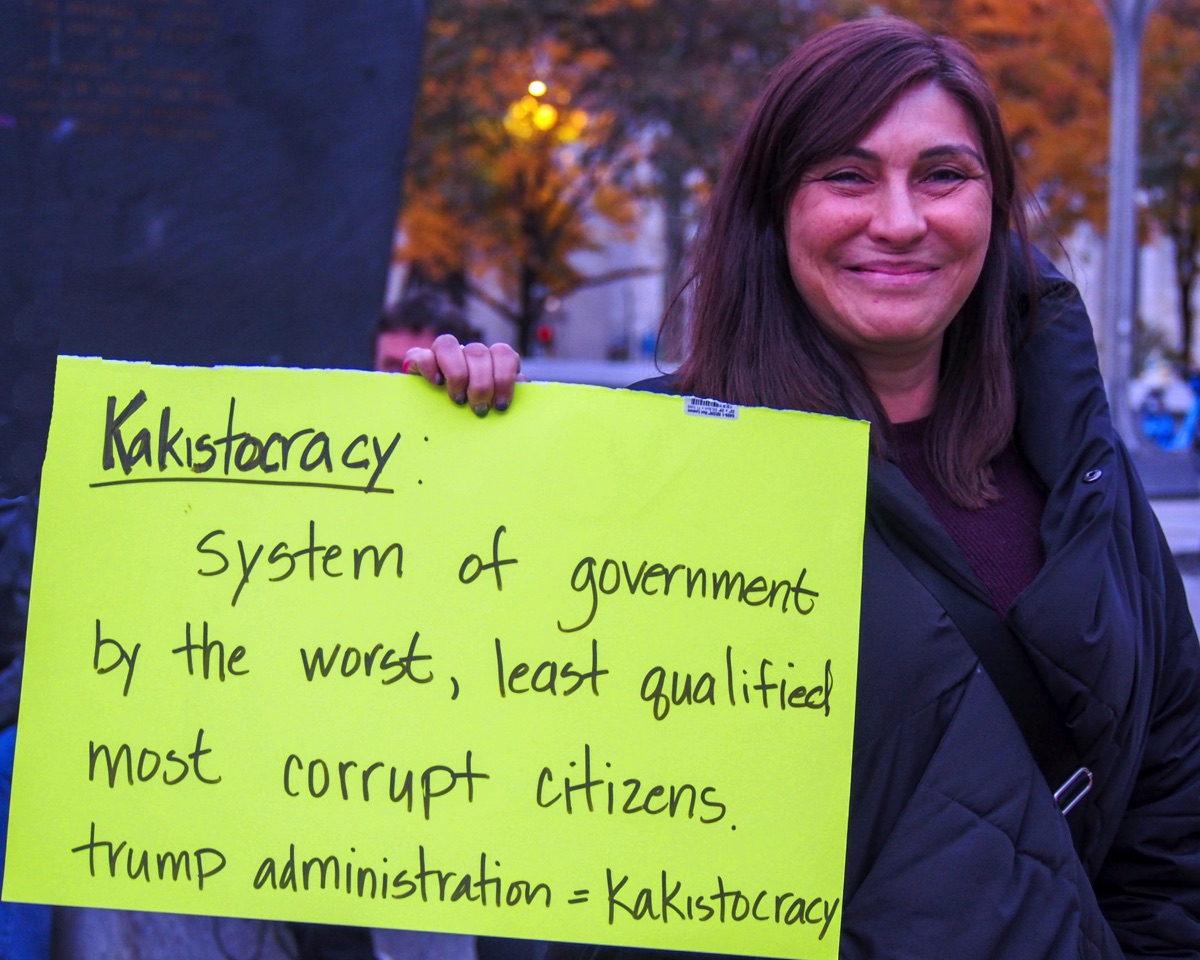 Kakistocracy:
system of government
by the worst, least qualified
most corrupt citizens.
trump administration = Kakistocracy